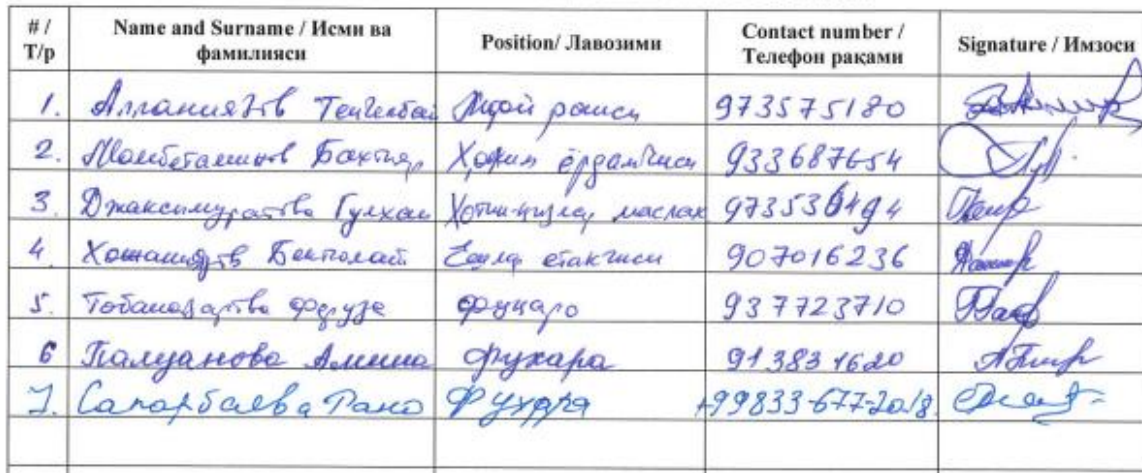 # / Т/р Name and Surname / Исми ва фамилияси Position/ Лавозими Contact number / Телефон рақами Signature / Имзоси
1. Аллаияров Тенгелбай Мфой раиси 973575180
2. Мамбеталиев Бахтияр Ҳоким ёрдамчиси 933687654
3. Джаксимуратова Гулхан Хотин-қизлар маслах
4. Бекполат Ёшлар етакчиси 907016236
5. Феруза фуқаро 937723710
6 Палуанова Амина Фухара 913831620
7. Сапарбаева Рано Фухара +99833-677-2018